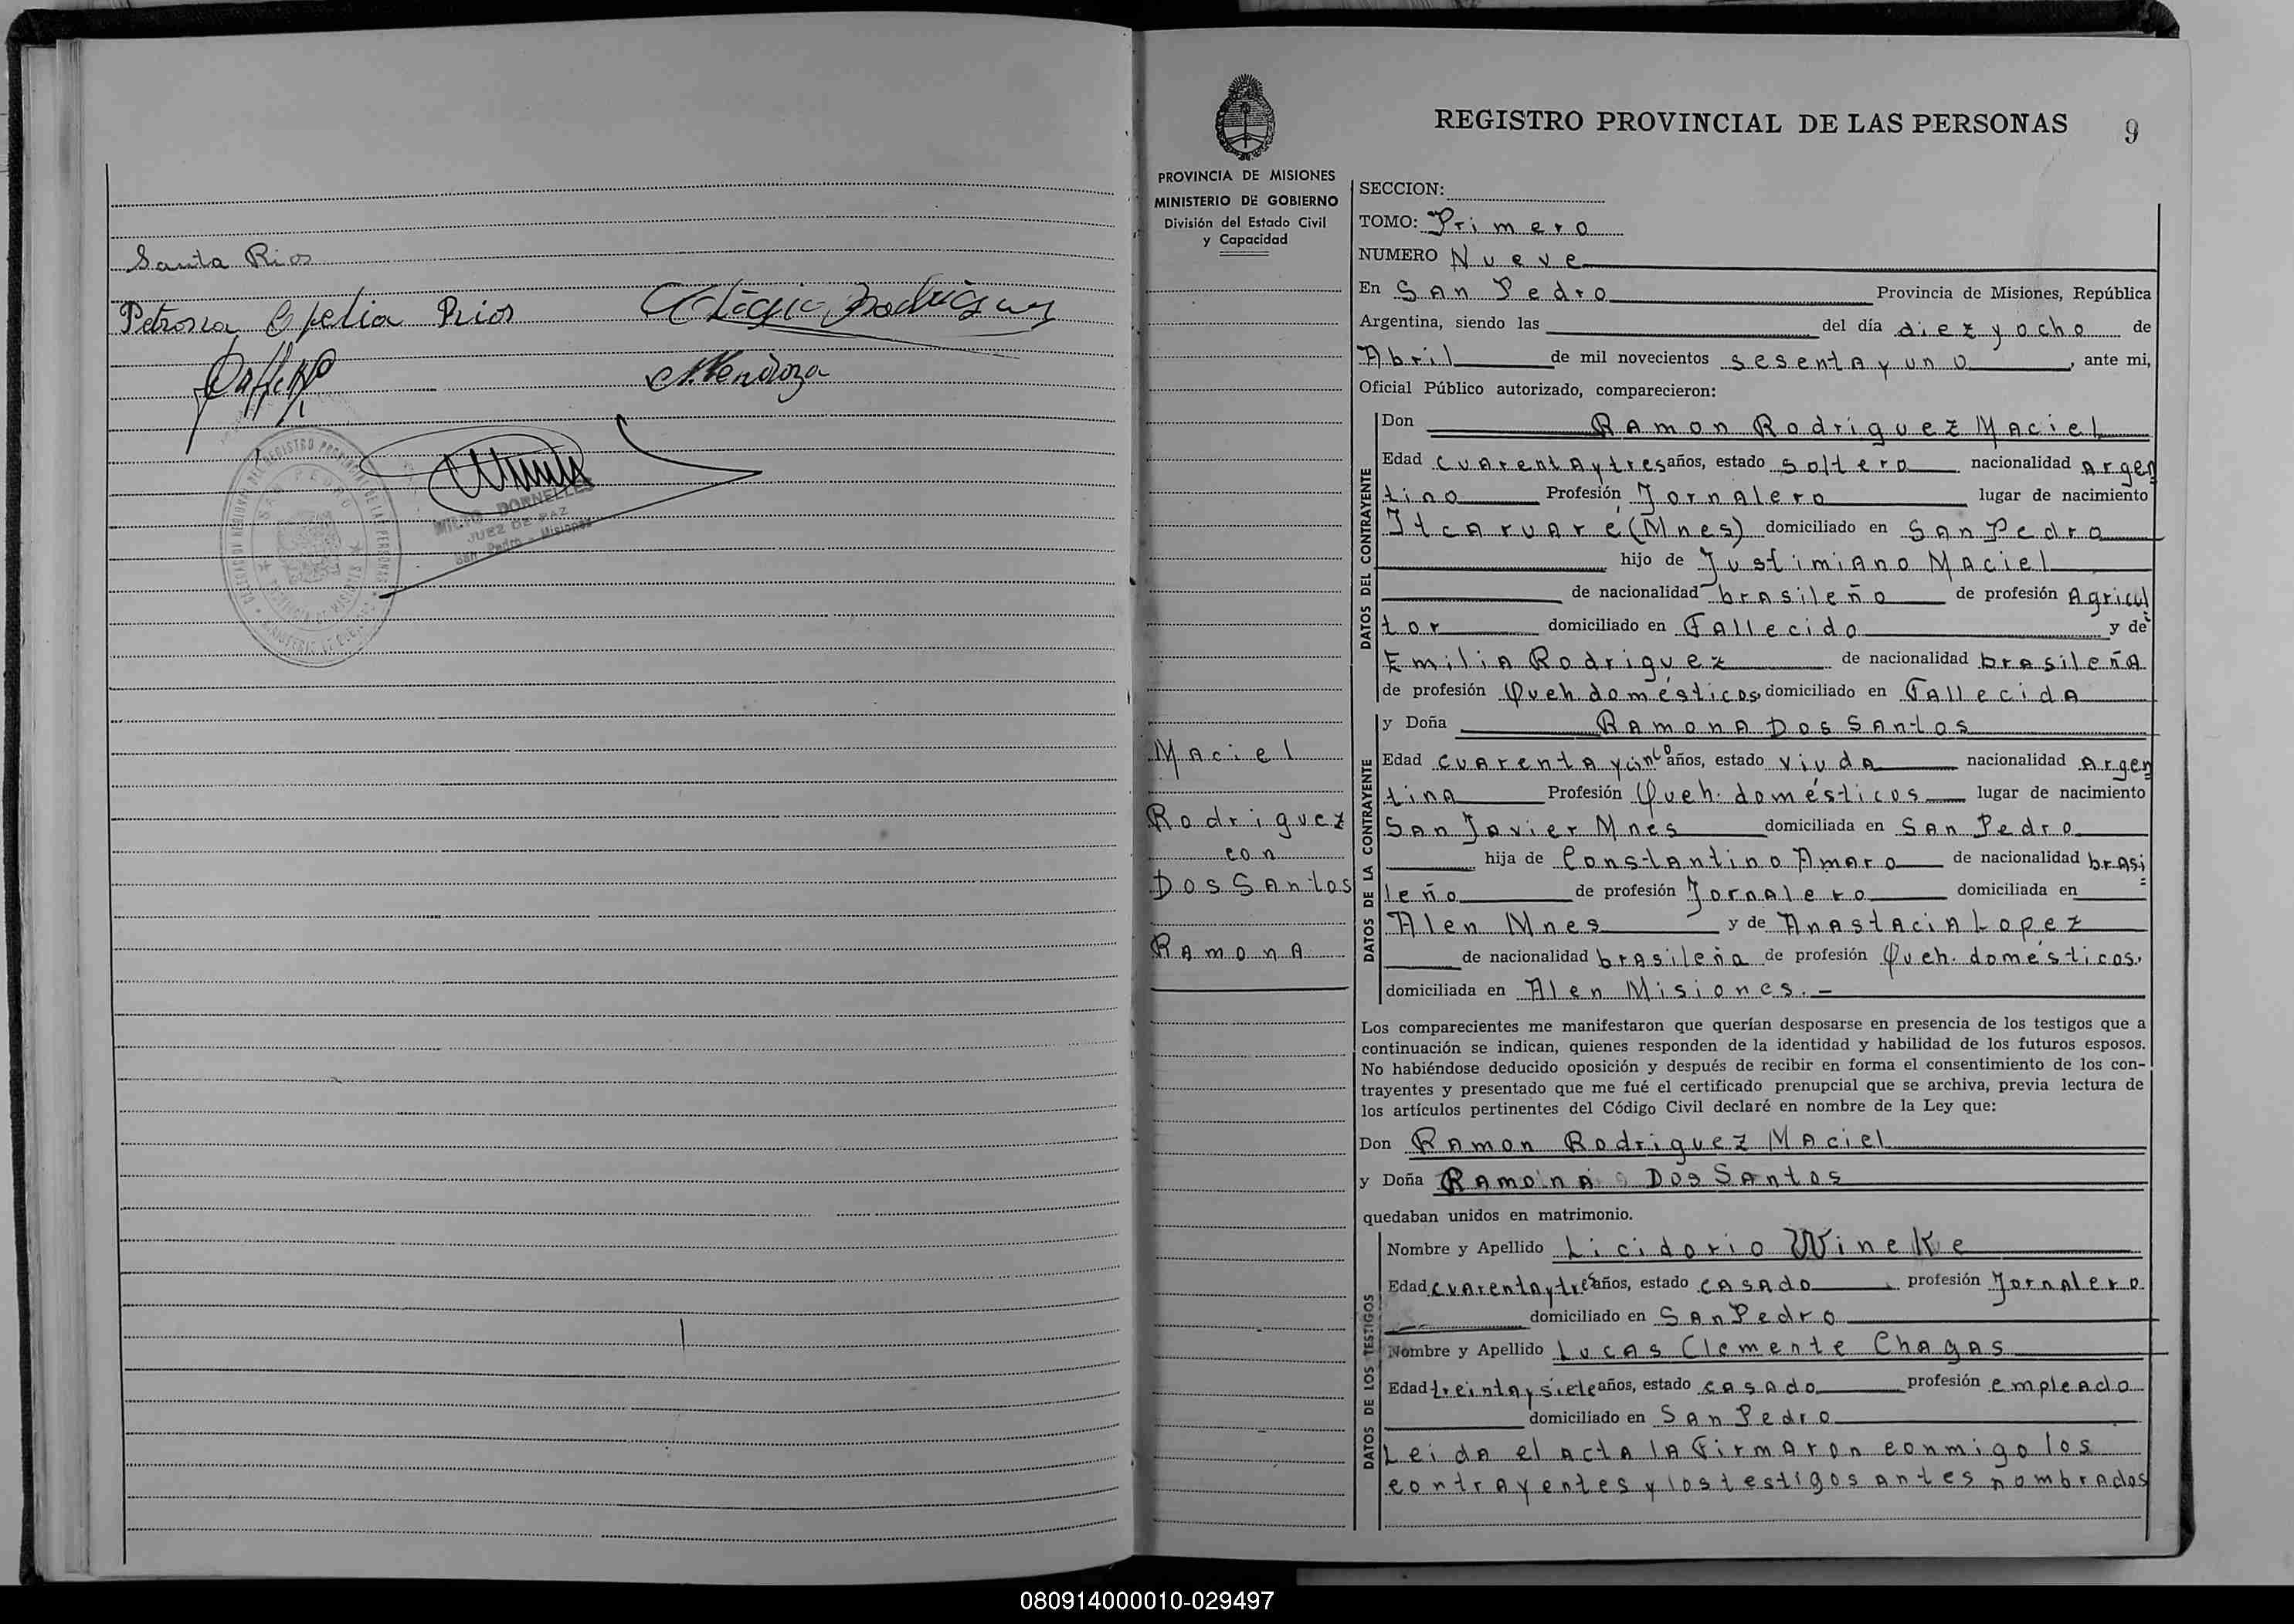 Santa Rios
Petrona Ofelia Rios
Eligio Rodriguez
Mendoza
SAN PEDRO
MILTO DORNELLES
JUEZ DE PAZ
San Pedro - Misiones
PROVINCIA DE MISIONES
MINISTERIO DE GOBIERNO
División del Estado Civil
y Capacidad
Maciel
Rodriguez
con
Dos Santos
Ramona
REGISTRO PROVINCIAL DE LAS PERSONAS 9
SECCION:
TOMO: Primero
NUMERO Nueve
En San Pedro Provincia de Misiones, República
Argentina, siendo las del día diez y ocho de
Abril de mil novecientos sesenta y uno, ante mi,
Oficial Público autorizado, comparecieron:
DATOS DEL CONTRAYENTE
Don Ramon Rodriguez Maciel
Edad cuarenta y tres años, estado soltero nacionalidad Argen
tino Profesión Jornalero lugar de nacimiento
Itcaruaré (Mnes) domiciliado en San Pedro
hijo de Justimiano Maciel
de nacionalidad brasileño de profesión Agricul
tor domiciliado en Fallecido y de
Emilia Rodriguez de nacionalidad brasileña
de profesión Queh. domésticos, domiciliado en Fallecida
DATOS DE LA CONTRAYENTE
y Doña Ramona Dos Santos
Edad cuarenta y cinco años, estado viuda nacionalidad Argen
tina Profesión Queh. domésticos lugar de nacimiento
San Javier Mnes domiciliada en San Pedro
hija de Constantino Amaro de nacionalidad brasi
leño de profesión Jornalero domiciliada en
Alen Mnes y de Anastacia Lopez
de nacionalidad brasileña de profesión Queh. domésticos,
domiciliada en Alen Misiones. -
Los comparecientes me manifestaron que querían desposarse en presencia de los testigos que a
continuación se indican, quienes responden de la identidad y habilidad de los futuros esposos.
No habiéndose deducido oposición y después de recibir en forma el consentimiento de los con-
trayentes y presentado que me fué el certificado prenupcial que se archiva, previa lectura de
los artículos pertinentes del Código Civil declaré en nombre de la Ley que:
Don Ramon Rodriguez Maciel
y Doña Ramona Dos Santos
quedaban unidos en matrimonio.
DATOS DE LOS TESTIGOS
Nombre y Apellido Licidorio Wineke
Edad cuarenta y tres años, estado casado profesión Jornalero
domiciliado en San Pedro
Nombre y Apellido Lucas Clemente Chagas
Edad treinta y siete años, estado casado profesión empleado
domiciliado en San Pedro
Leida el acta la firmaron conmigo los
contrayentes y los testigos antes nombrados
080914000010-029497